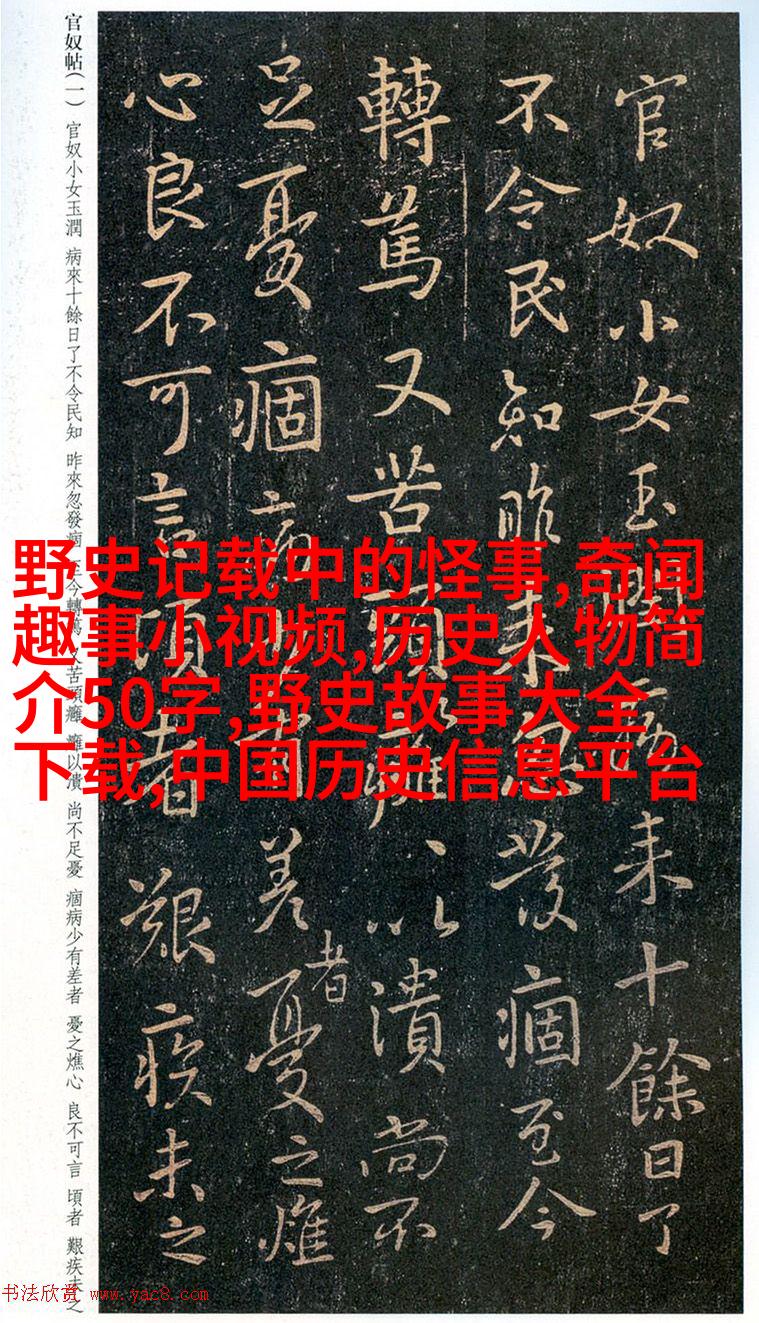 官奴小女玉潤病来十餘日了
不令民知昨来忽發痼至今
轉萬又苦頭癰、以潰尚不
足憂痼病少有差者憂之燋
心良不可言頃者艱疾未之
官奴帖(一) 官奴小女玉潤 病來十餘日了不令民知 昨來忽發痼 至今轉萬 又苦頭癰 癰以潰 尚不足憂 痼病少有差者 憂之燋心 良不可言 頃者 艱疾未之
野史记载中的怪事,奇闻
趣事小视频,历史人物简
介50字,野史故事大全
下载,中国历史信息平台
书法欣赏 www.yac8.com